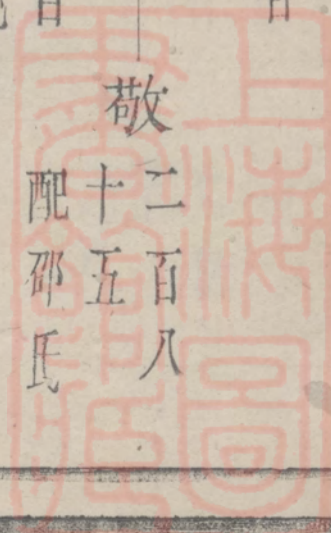 敬
二百八
十五
配邵氏
上海圖
書館藏